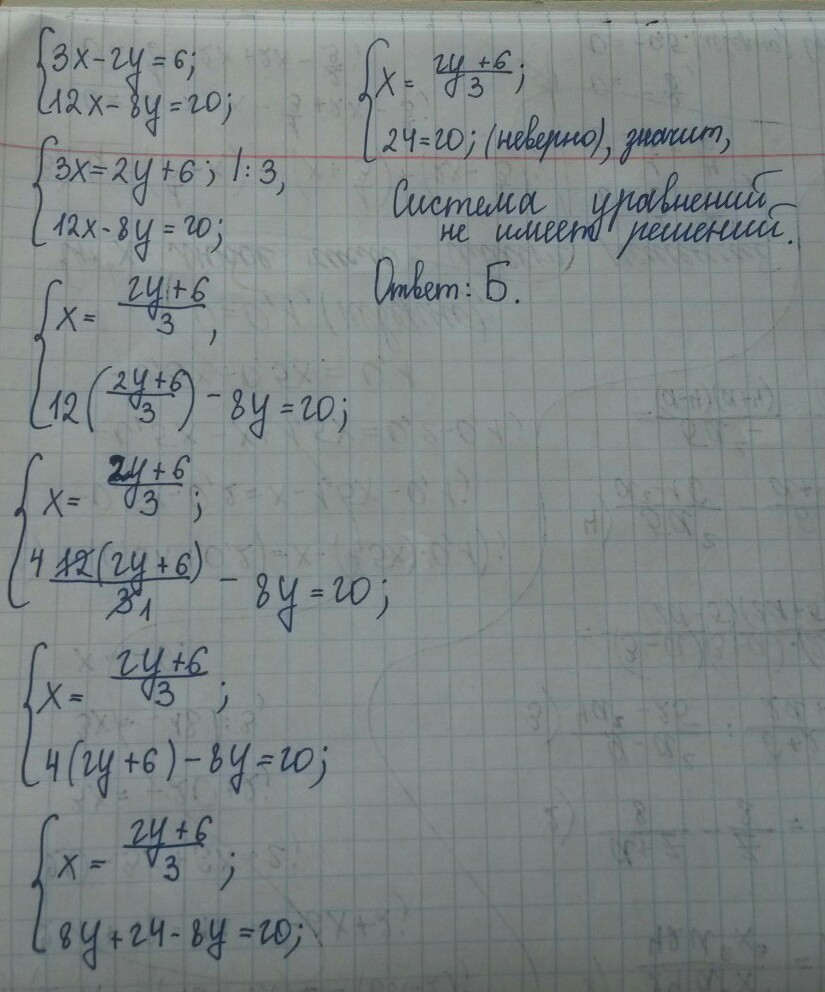 {3x-2y=6;
{12x-8y=20;
{3x=2y+6; |:3,
{12x-8y=20;
{x= (2y+6)/3,
{12((2y+6)/3)-8y=20;
{x= (2y+6)/3;
{4 12(2y+6)/3 1 - 8y=20;
{x= (2y+6)/3;
{4(2y+6)-8y=20;
{x= (2y+6)/3;
{8y+24-8y=20;
{x= (2y+6)/3;
{24=20; (неверно), значит,
Система уравнений
не имеет решений.
Ответ: Б.